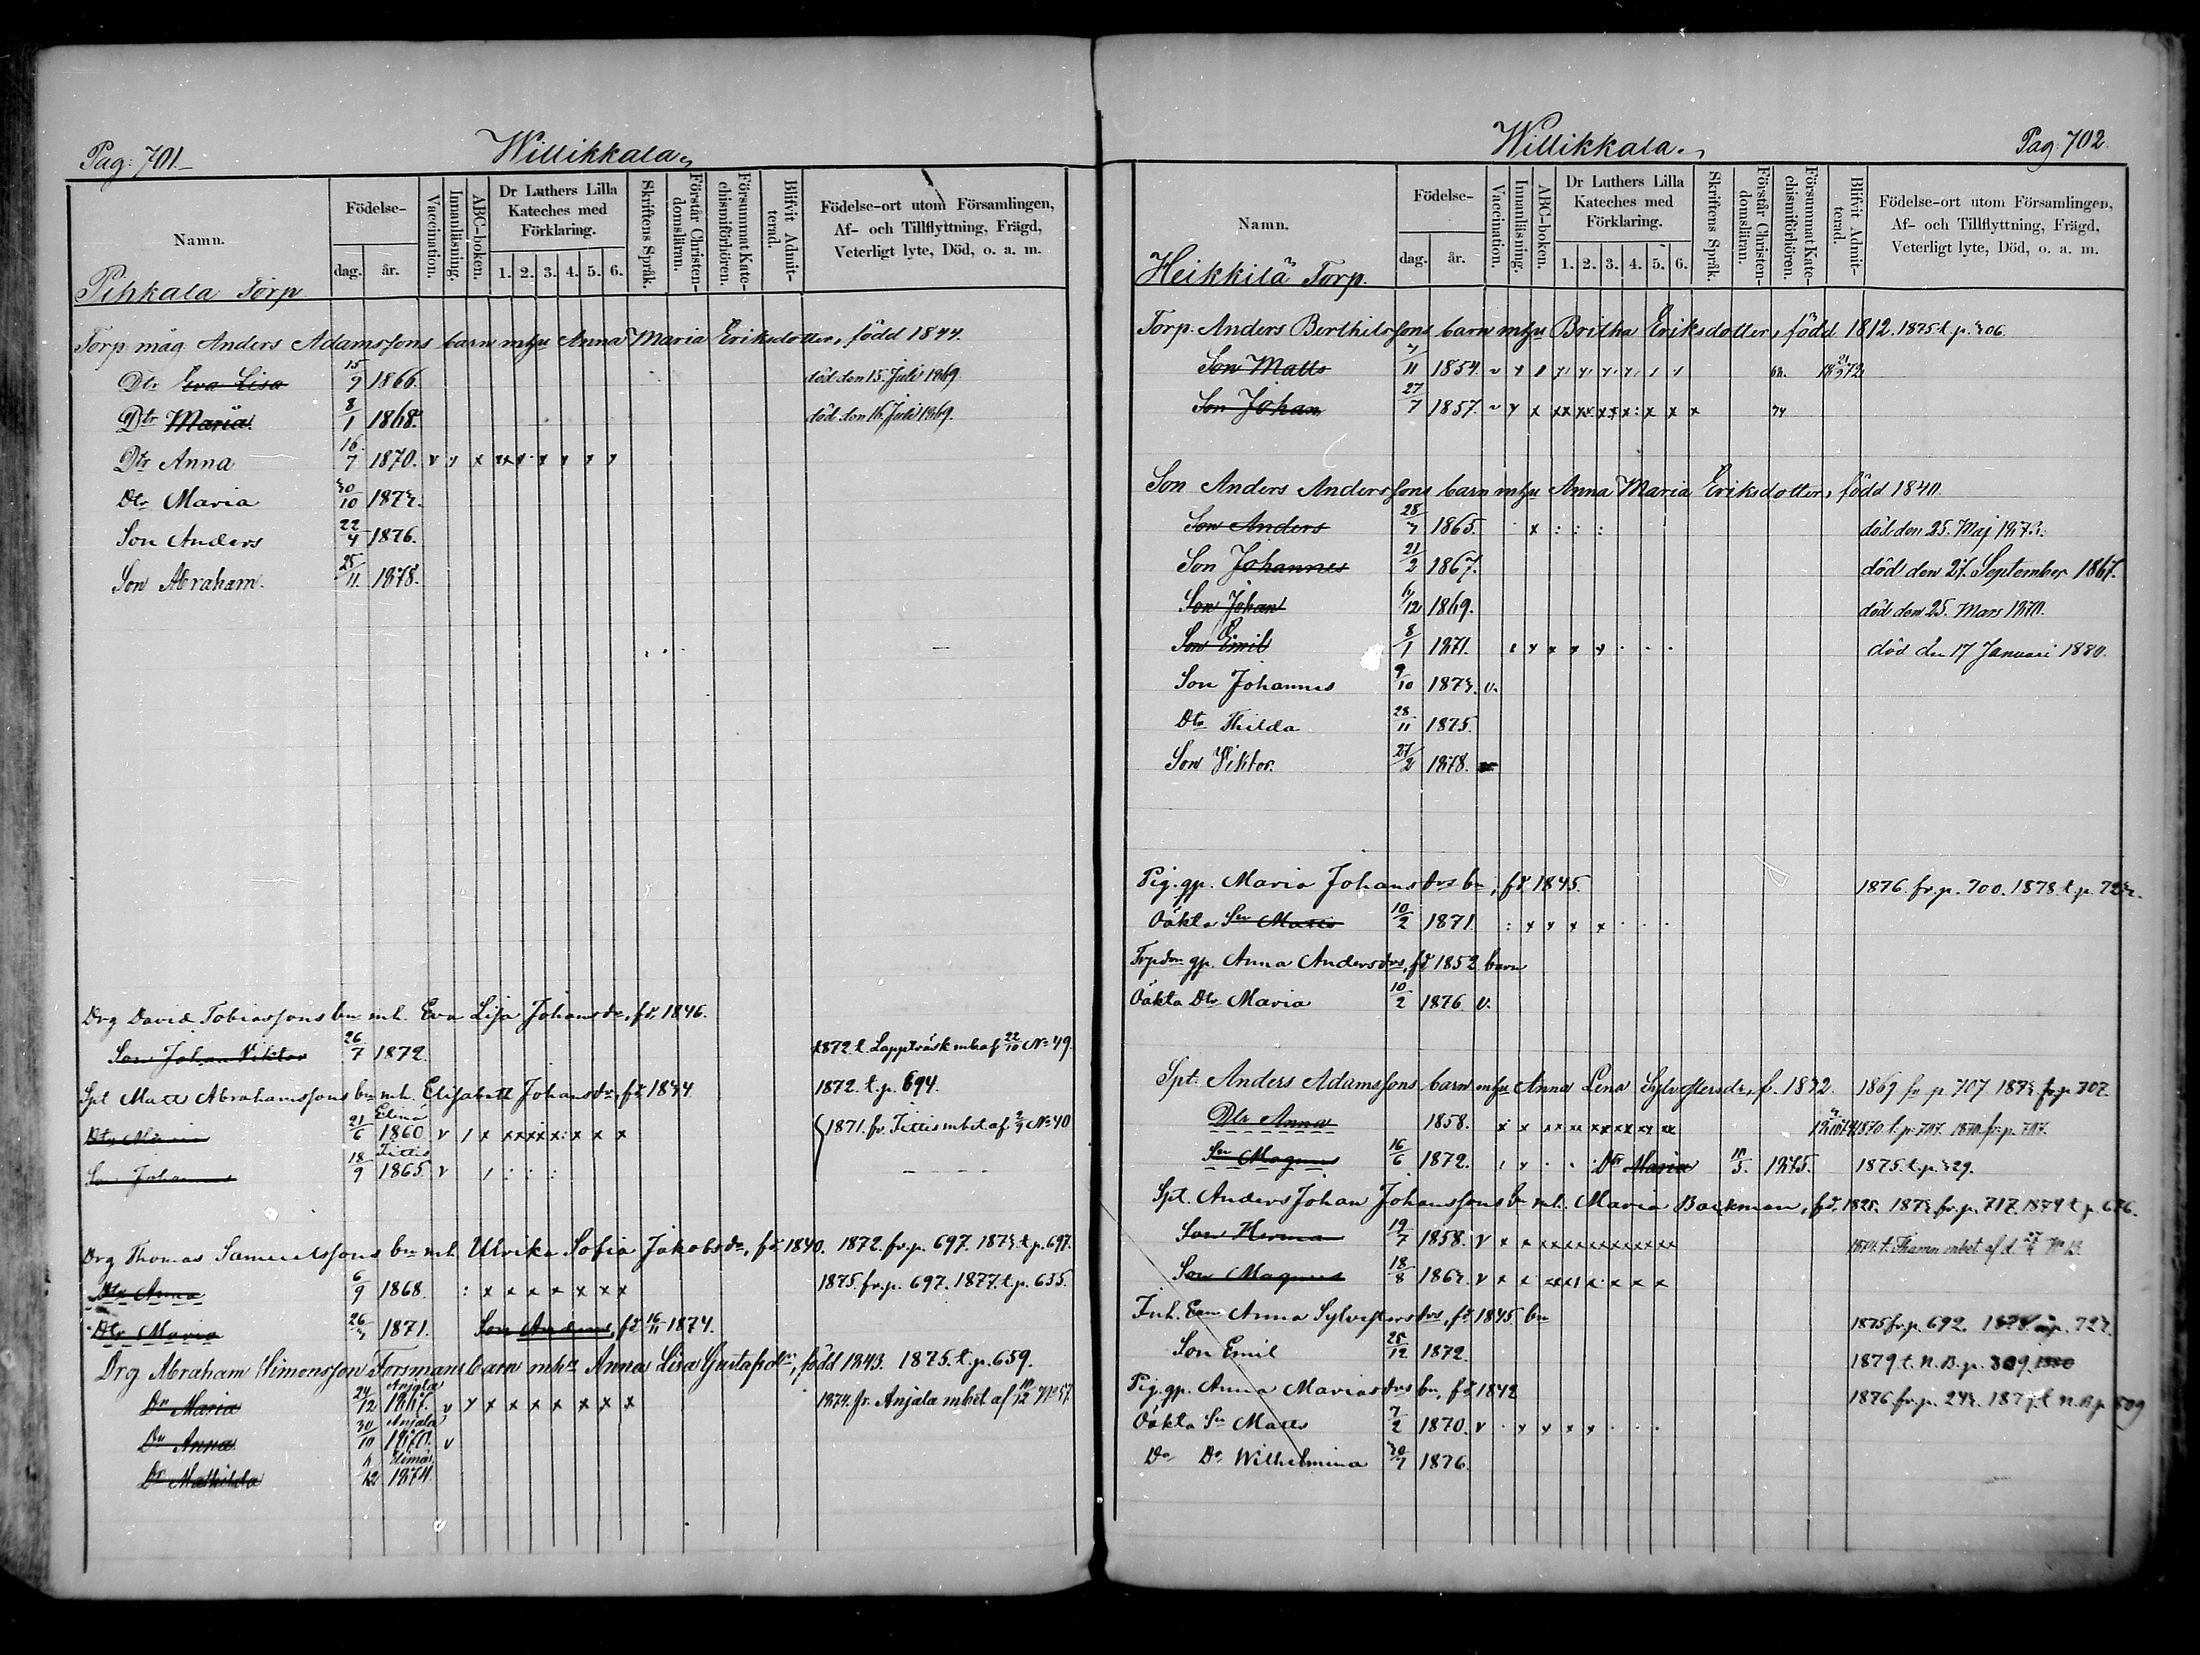 Pag: 701.
Willikkala.
Namn.
Födelse-
dag. år.
Vaccination.
Innanläsning.
ABC-boken.
Dr Luthers Lilla Kateches med Förklaring.
1. 2. 3. 4. 5. 6.
Skriftens Språk.
Förstår Christendomsläran.
Försummat Katechismiförhören.
Blifvit Admitterad.
Födelse-ort utom Församlingen,
Af- och Tillflyttning, Frägd,
Veterligt lyte, Död, o. a. m.
Pihkala Torp
Torp. måg Anders Adamssons barn mhu Anna Maria Eriksdotter, född 1844.
Dtr Eva Lisa 15/9 1866. död den 15. Juli 1869.
Dtr Maria 8/1 1868. död den 16. Juli 1869.
Dtr Anna 16/7 1870. v y x xx y x y y y
Dtr Maria 30/10 1873.
Son Anders 22/4 1876.
Son Abraham. 25/11. 1878.
Drg David Tobiassons bn mh. Eva Lisa Johansdr, fd. 1846.
Son Johan Viktor 26/7 1872. 1872 t. Lappträsk mbet af 22/10 No 49.
Spt Matts Abrahamssons bn mh. Elisabett Johansdr, fd 1834 1872. t. p. 694.
Dtr Maria 21/6 Elimä 1860 v / x xxxxx: x x x 1871. fr. Tittis mbet. af 2/7 No 40
Son Johannes 18/9 Tittis 1865. v / : : :
Drg Thomas Samuelssons bn mh. Ulrika Sofia Jakobsdr, fd 1840. 1872. fr. p. 697. 1873. t. p. 697.
Dtr Anna 6/9 1868. : x x x x x x x 1875. fr. p. 697. 1877. t. p. 635.
Dtr Maria 26/3 1871. Son Anders, fd 16/11 1874.
Drg Abraham Simonsson Forsmans barn mhu Anna Lisa Gustafsdr, född 1843. 1875. t. p. 659.
Dr Maria 24/12 Anjala 1867. v y x x x x x x x 1874. fr. Anjala mbet af 10/12 No 57.
Dr Anna 30/10 Anjala 1870. v
Dr Mathilda 12 Elimä 1874.
Willikkala.
Pag. 702.
Namn.
Födelse-
dag. år.
Vaccination.
Innanläsning.
ABC-boken.
Dr Luthers Lilla Kateches med Förklaring.
1. 2. 3. 4. 5. 6.
Skriftens Språk.
Förstår Christendomsläran.
Försummat Katechismiförhören.
Blifvit Admitterad.
Födelse-ort utom Församlingen,
Af- och Tillflyttning, Frägd,
Veterligt lyte, Död, o. a. m.
Heikkilä Torp.
Torp. Anders Berthilssons barn mhu Britha Eriksdotter, född 1812. 1875 t. p. 306.
Son Matts 7/11 1854.
Son Johan 27/7 1857. 74
Son Anders Anderssons barn mhu Anna Maria Eriksdotter, född 1840.
Son Anders 28/3 1865. . x : : : död den 25. Maj 1873.
Son Johannes 21/2 1867. död den 27. September 1867.
Son Johan 6/12 1869. död den 25. Mars 1870.
Son Emil 8/1 1871. död den 17 Januari 1880.
Son Johannes 9/10 1873. v.
Dtr Thilda 28/11 1875.
Son Viktor. 27/2 1878.
Pig. gp. Maria Johansdrs bn, fd 1845. 1876. fr. p. 700. 1878. t. p. 723.
Oäkta Sn Matts 10/2 1871. : x x x x . . .
Trpdtr gp. Anna Andersdrs, fd 1852 barn
Oäkta Dtr Maria 10/2 1876 v.
Spt. Anders Adamssons barn mhu Anna Lena Sylvestersdr, f. 1832. 1869 fr p 707 1873 fr p. 707.
Dtr Anna 1858.
Sn Magnus 16/6 1872. Dtr Maria 10/5. 1875. 1875. t. p. 329.
Spt. Anders Johan Johanssons bn mh. Maria Backman, fd. 1825. 1873. fr. p. 717. 1874 t. p. 676.
Son Herman 19/7 1858. v x x xxxxxxxxxx
Son Magnus 18/8 1863. v x x xxxx x x x x
Inh. Enk Anna Sylvestersdrs, fd 1845 bn 1875 fr. p. 692. 1878 723.
Son Emil 25/12 1872. 1879. t. N. B. p. 809.
Pig. gp. Anna Mariasdrs bn, fd 1842 1876 fr. p. 243. 1879. t. N. B. p 809
Oäkta Sn Matts 7/2 1870. v . y y x x . . .
Do Do Wilhelmina 30/7 1876.